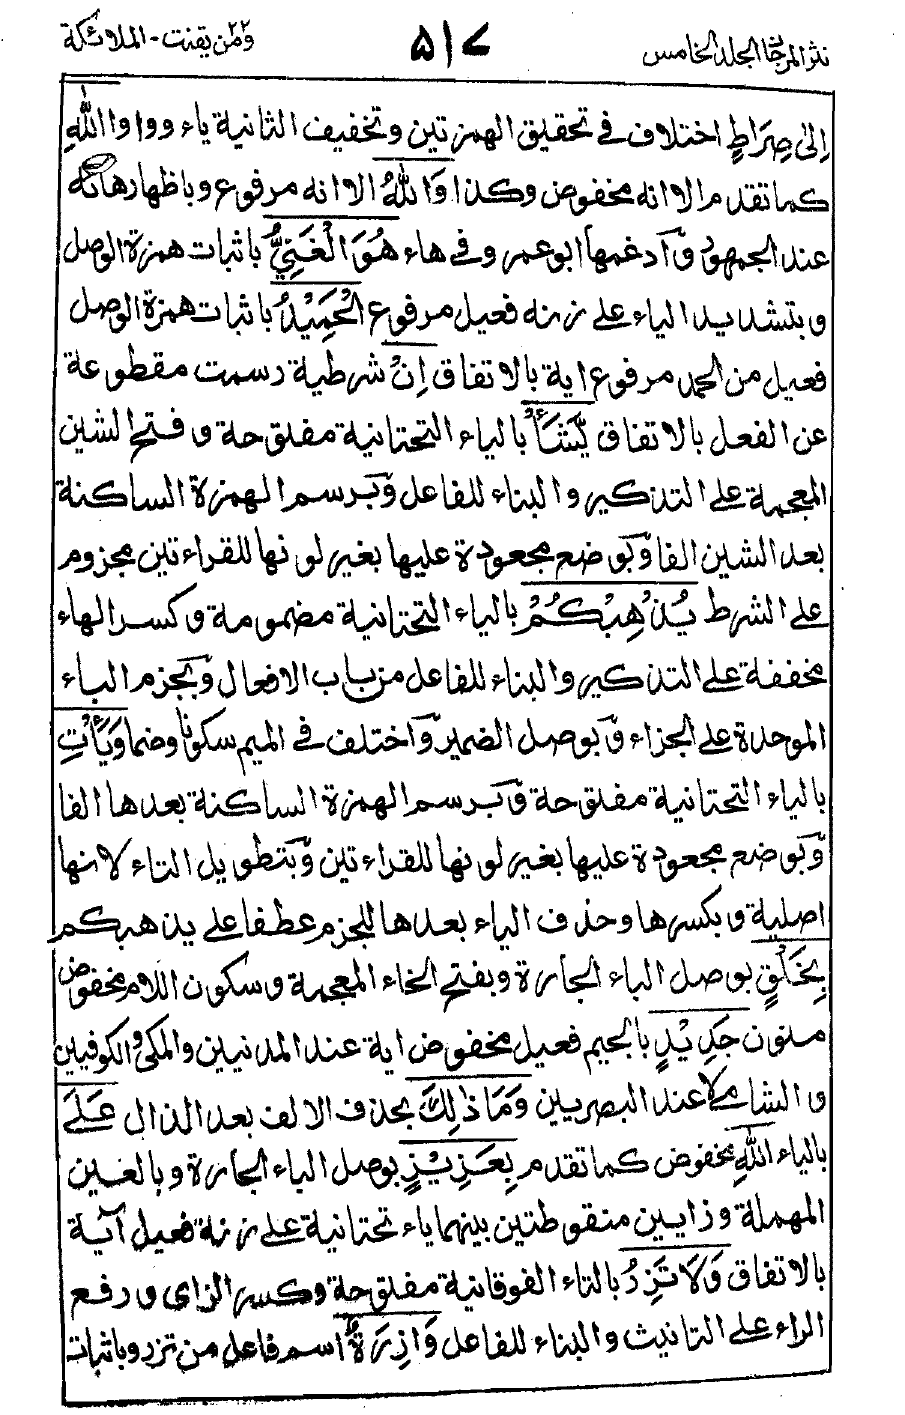 نثر المرجان المجلد الخامس ۵۱۷ ومن يقنت-الملائكة ۲۲
الى صِرَاطٍ اختلاف في تحقيق الهمزتين وتخفيف الثانية ياء وواوا اللهِ
كما تقدم الا انه مخفوض وكذا وَاللهُ الا انه مرفوع وباظهار هائه
عند الجمهور وآدغمها ابو عمرو في هاء هُوَ الْغَنِيُّ باثبات همزة الوصل
وبتشديد الياء على زنة فعيل مرفوع الْحَمِيْدُ باثبات همزة الوصل
فعيل من الحمد مرفوع اية بالاتفاق اِنْ شرطية رسمت مقطوعة
عن الفعل بالاتفاق يَّشَأْ بالياء التحتانية مفتوحة وفتح الشين
المعجمة على التذكير والبناء للفاعل وبرسم الهمزة الساكنة
بعد الشين الفا وبوضع مجعودة عليها بغير لونها للقراءتين مجزوم
على الشرط يُذْهِبْكُمْ بالياء التحتانية مضمومة وكسر الهاء
مخففة على التذكير والبناء للفاعل من باب الافعال وبجزم الباء
الموحدة على الجزاء وبوصل الضمير واختلف في الميم سكونا وضما وَيَأْتِ
بالياء التحتانية مفتوحة وبرسم الهمزة الساكنة بعدها الفا
وبوضع مجعودة عليها بغير لونها للقراءتين وبتطويل التاء لانها
اصلية وبكسرها وحذف الياء بعدها للجزم عطفا على يذهبكم
بِخَلْقٍ بوصل الباء الجارة وبفتح الخاء المعجمة وسكون اللام مخفوض
منون جَدِيْدٍ بالجيم فعيل مخفوض اية عند المدنيين والمكي والكوفيين
والشامي لا عند البصريين وَمَا ذٰلِكَ بحذف الالف بعد الذال عَلَى
بالياء اللهِ مخفوض كما تقدم بِعَزِيْزٍ بوصل الباء الجارة وبالعين
المهملة وزايين منقوطتين بينهما ياء تحتانية على زنة فعيل آية
بالاتفاق وَلَا تَزِرُ بالتاء الفوقانية مفتوحة وكسر الزاى ورفع
الراء على التانيث والبناء للفاعل وَازِرَةٌ اسم فاعل من تزر وباثبات